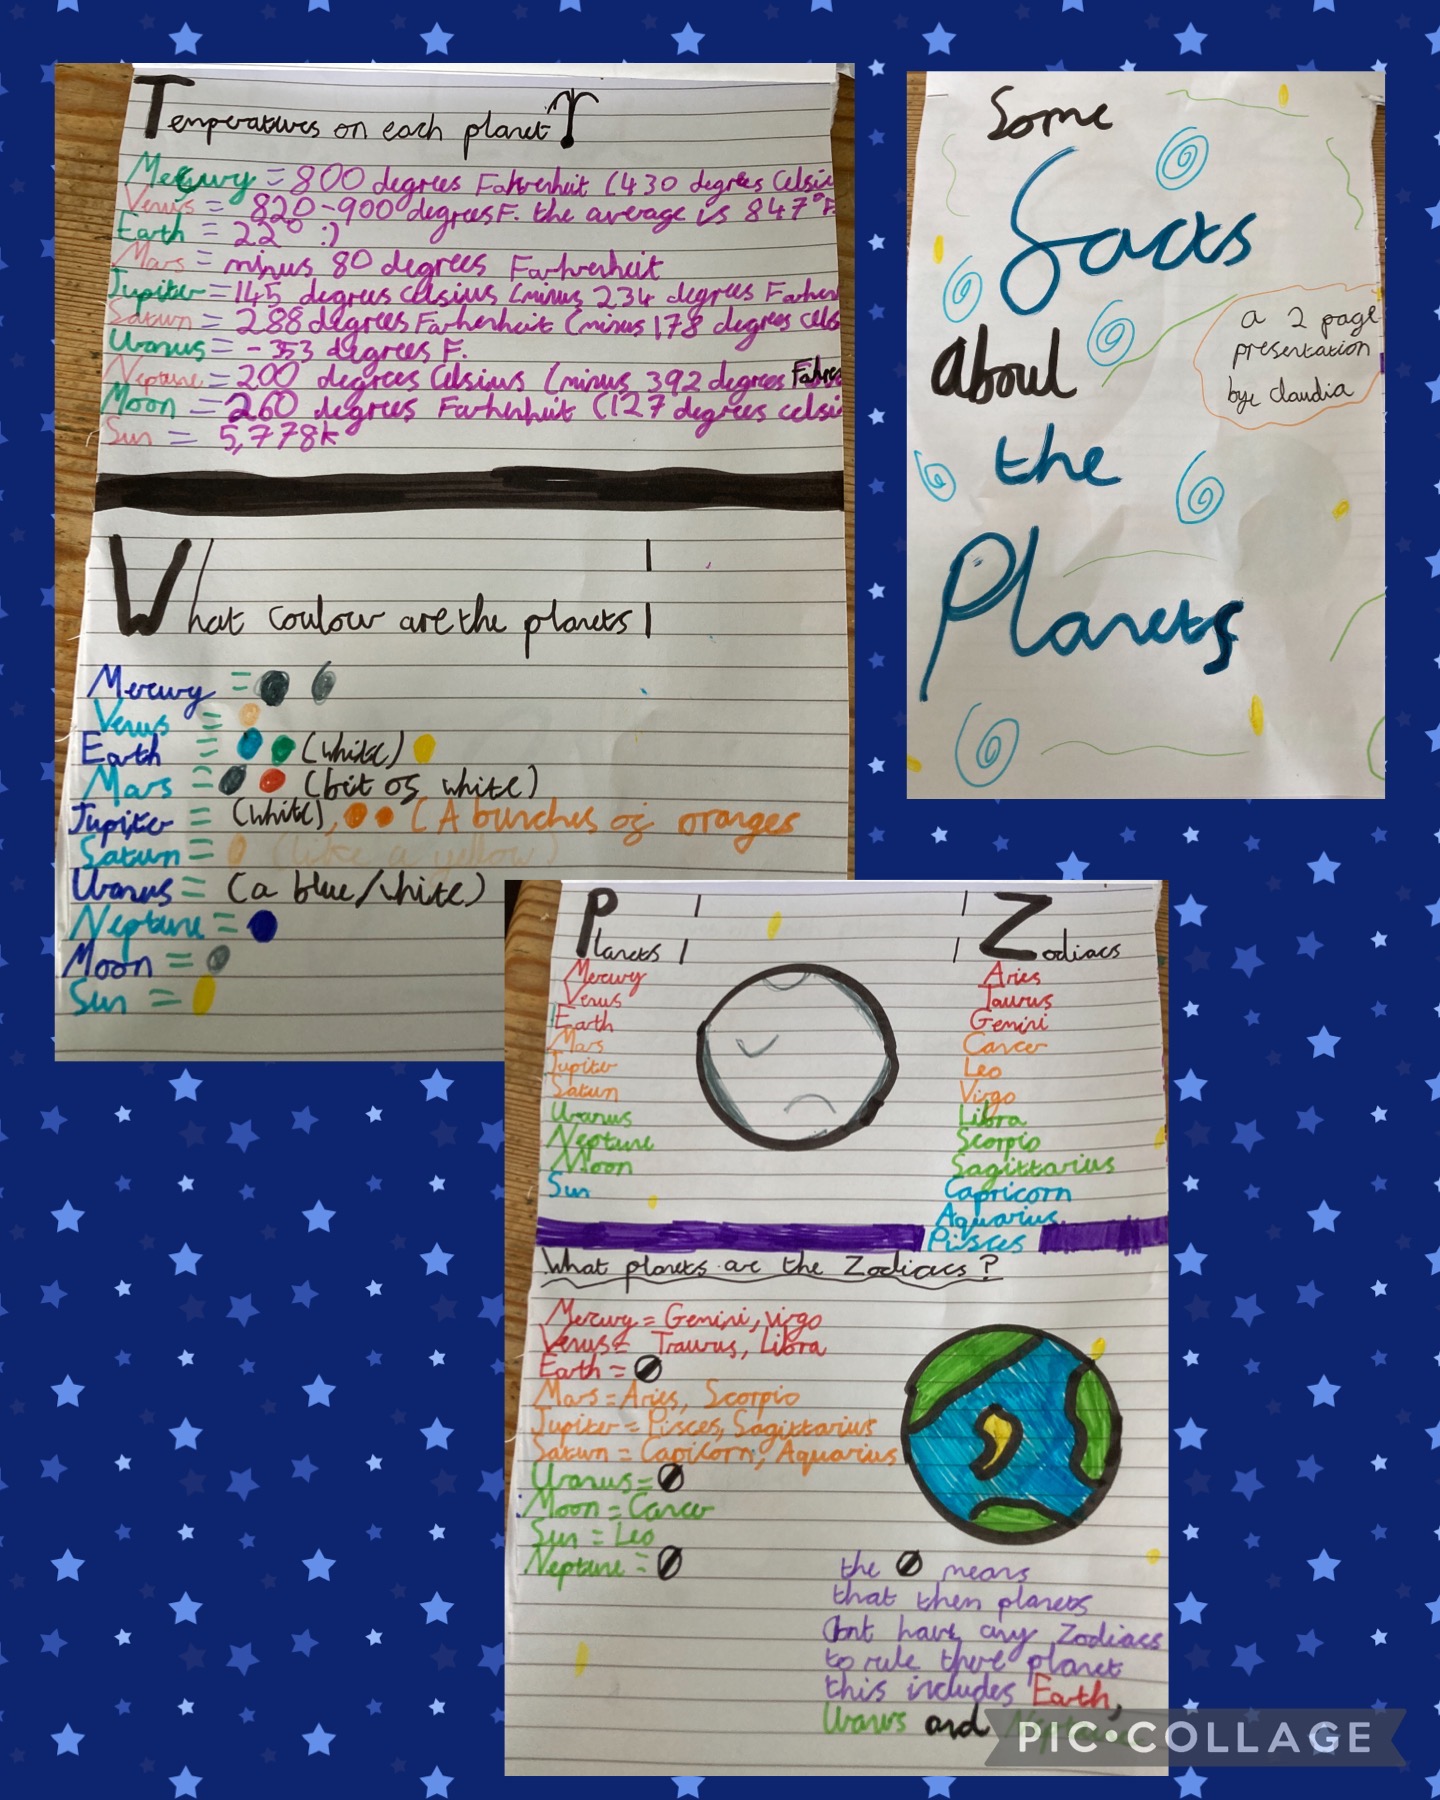 Temperatures on each planet
Mercury = 800 degrees Fahrenheit (430 degrees Celsiu
Venus = 820-900 degrees F. the average is 847°F.
Earth = 22° :)
Mars = minus 80 degrees Farhrenheit
Jupiter = 145 degrees celsius (minus 234 degrees Farhen
Saturn = 288 degrees Farhenheit (minus 178 degrees cels
Uranus = -353 degrees F.
Neptune = 200 degrees Celsius (minus 392 degrees Fahre
Moon = 260 degrees Farhenheit (127 degrees celsi
Sun = 5,778k
What coulour are the planets
Mercury =
Venus =
Earth = (white)
Mars = (bit of white)
Jupiter = (white), (A bunches of oranges
Saturn = (like a yellow)
Uranus = (a blue/white)
Neptune =
Moon =
Sun =
Some
Facts
About
the
Planets
a 2 page
presentation
bye claudia
Planets
Mercury
Venus
Earth
Mars
Jupiter
Saturn
Uranus
Neptune
Moon
Sun
Zodiacs
Aries
Taurus
Gemini
Cancer
Leo
Virgo
Libra
Scorpio
Sagittarius
Capricorn
Aquarius
Pisces
What planets are the Zodiacs?
Mercury = Gemini, virgo
Venus = Traurus, Libra
Earth = Ø
Mars = Aries, Scorpio
Jupiter = Pisces, Sagittarius
Saturn = Capicorn, Aquarius
Uranus = Ø
Moon = Cancer
Sun = Leo
Neptune = Ø
the Ø means
that then planets
dont have any Zodiacs
to rule there planet
this includes Earth,
Uranus and Neptune
PIC•COLLAGE